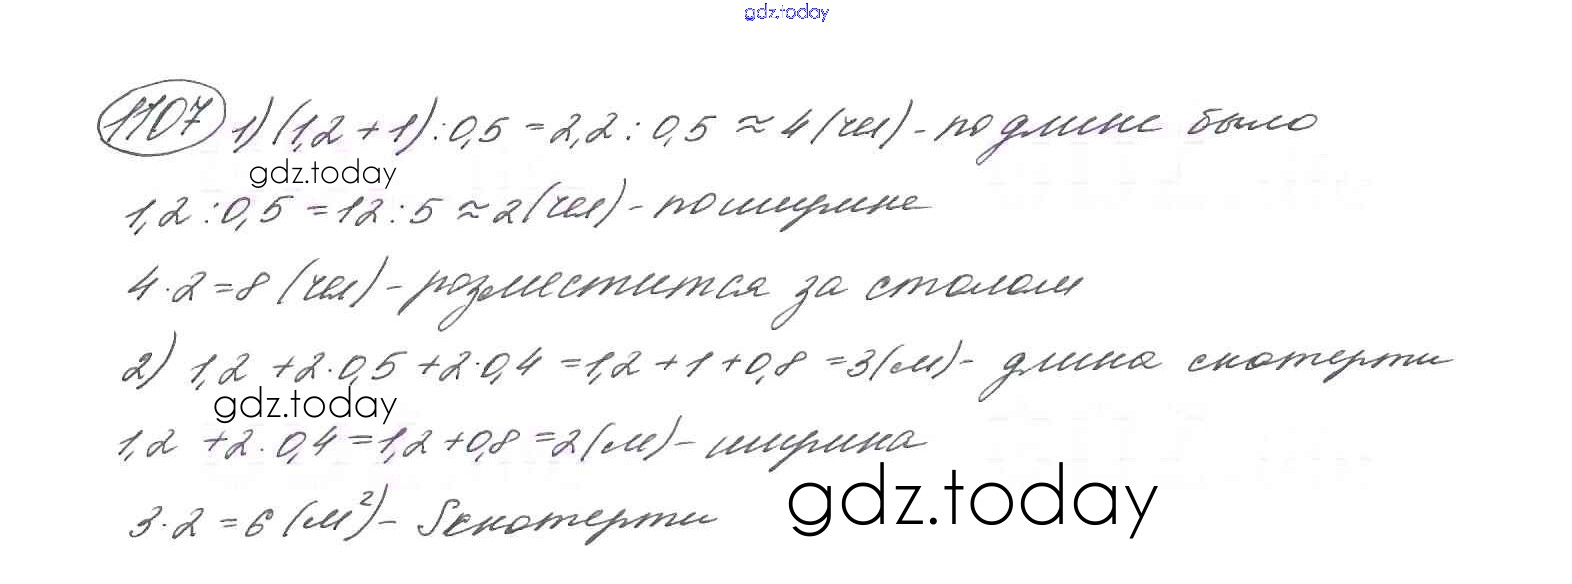 gdz.today
1107 1) (1,2 + 1) : 0,5 = 2,2 : 0,5 ≈ 4 (чел) - по длине было
gdz.today
1,2 : 0,5 = 12 : 5 ≈ 2 (чел) - по ширине
4 · 2 = 8 (чел) - розместится за столом
2) 1,2 + 2 · 0,5 + 2 · 0,4 = 1,2 + 1 + 0,8 = 3 (м) - длина скатерти
gdz.today
1,2 + 2 · 0,4 = 1,2 + 0,8 = 2 (м) - ширина
gdz.today
3 · 2 = 6 (м²) - S скатерти